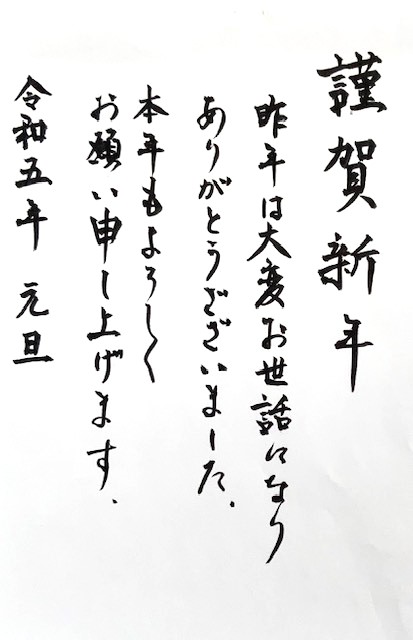 謹賀新年
昨年は大変お世話になり
ありがとうございました.
本年もよろしく
お願い申し上げます.
令和五年 元旦